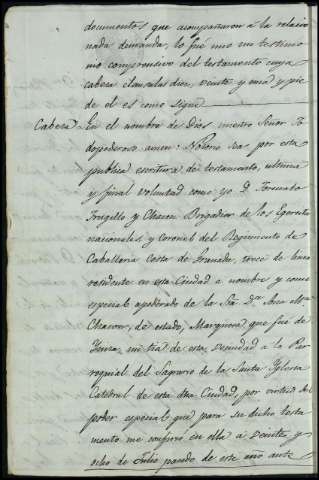 documentos que acompañaron á la relacio
nada demanda, lo fue uno un testimo
nio comprensivo del testamento cuya
cabeza clausulas diez, veinte y una y pie
de el es como sigue
Cabeza En el nombre de Dios nuestro Señor To
dopoderoso amen: Notorio sea por esta
publica escritura de testamento, ultima
y final voluntad como yo Dn. Fernando
Trugillo y Chacon Brigadier de los Egercitos
nacionales, y Coronel del Regimiento de
Caballeria Costa de Granada, once de linea
residente en esta Ciudad a nombre y como
especial apoderado de la Sra. Da. Ana Ma.
Chacon, de estado, Marquesa que fue de
mi tia de esta vecindad a la Par
roquial del Sagrario de la Santa Yglesia
Catedral de esta dha Ciudad, por virtud del
poder especial que para su dicho testa
mento me confirió en ella a veinte y
ocho de Julio pasado de este año ante